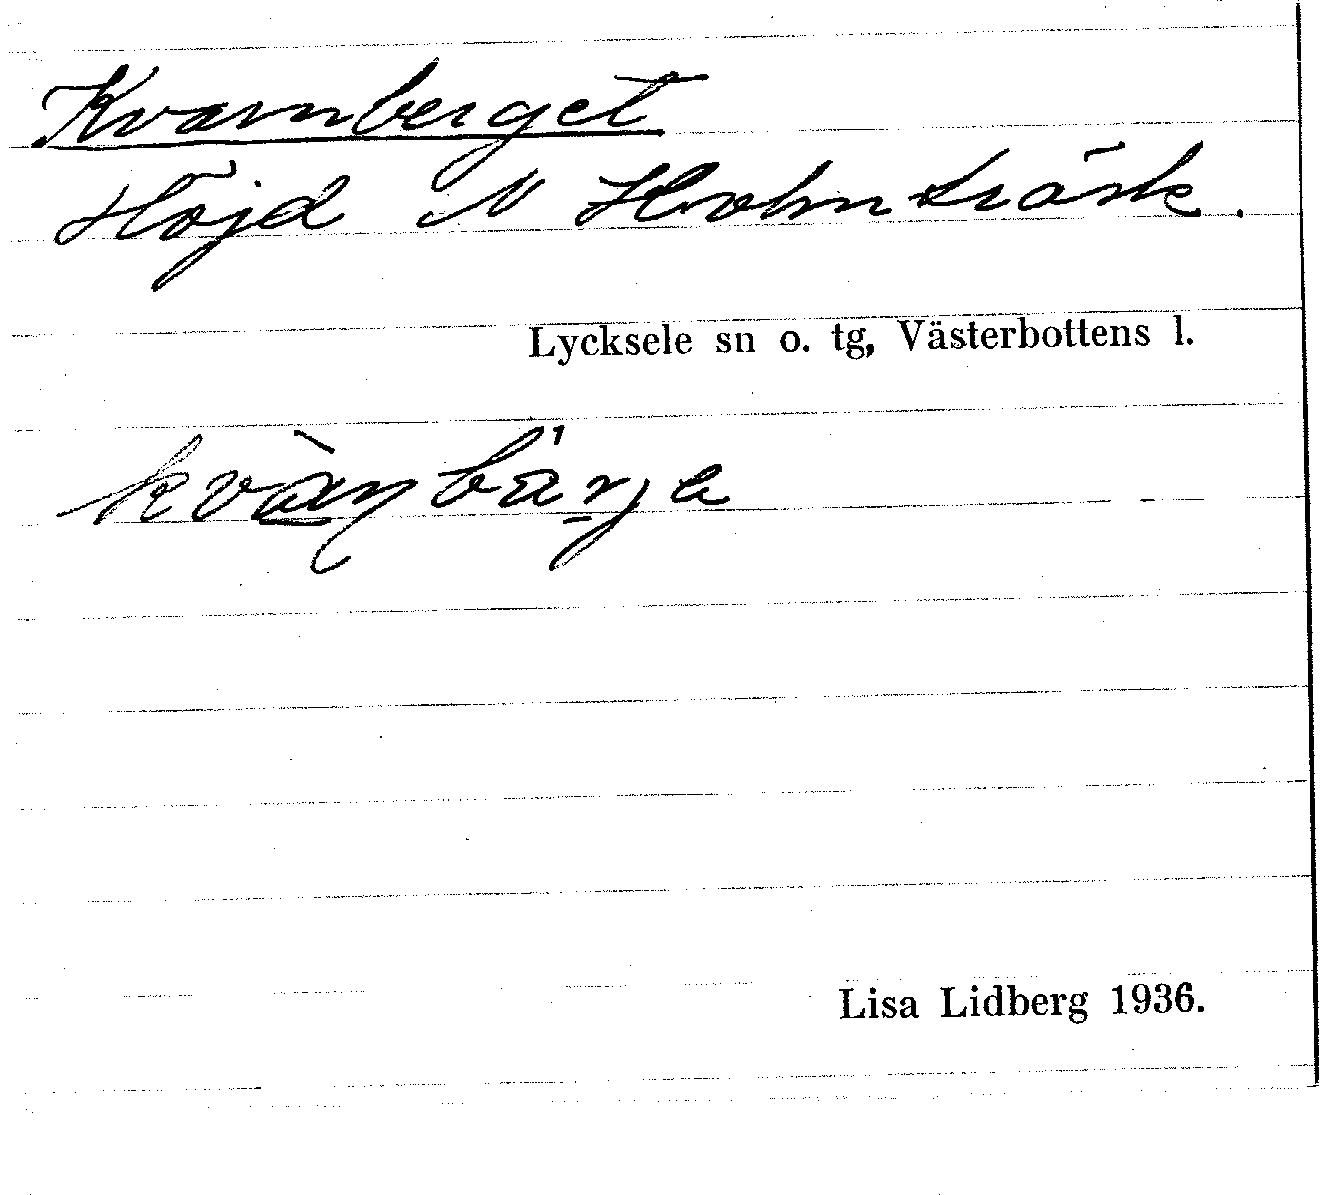 Kvarnberget
Höjd N Holmträsk.
Lycksele sn o. tg, Västerbottens l.
kvàṇbä́rjɐ
Lisa Lidberg 1936.